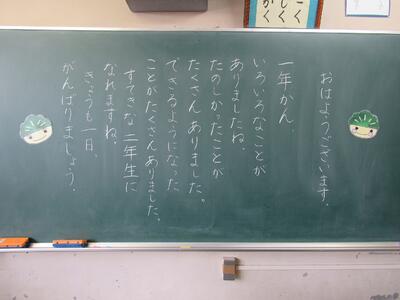 おはようございます。
一年かん、
いろいろなことが
ありましたね。
たのしかったことが
たくさんありました。
できるようになった
ことがたくさんありました。
すてきな二年生に
なれますね。
きょうも一日、
がんばりましょう。